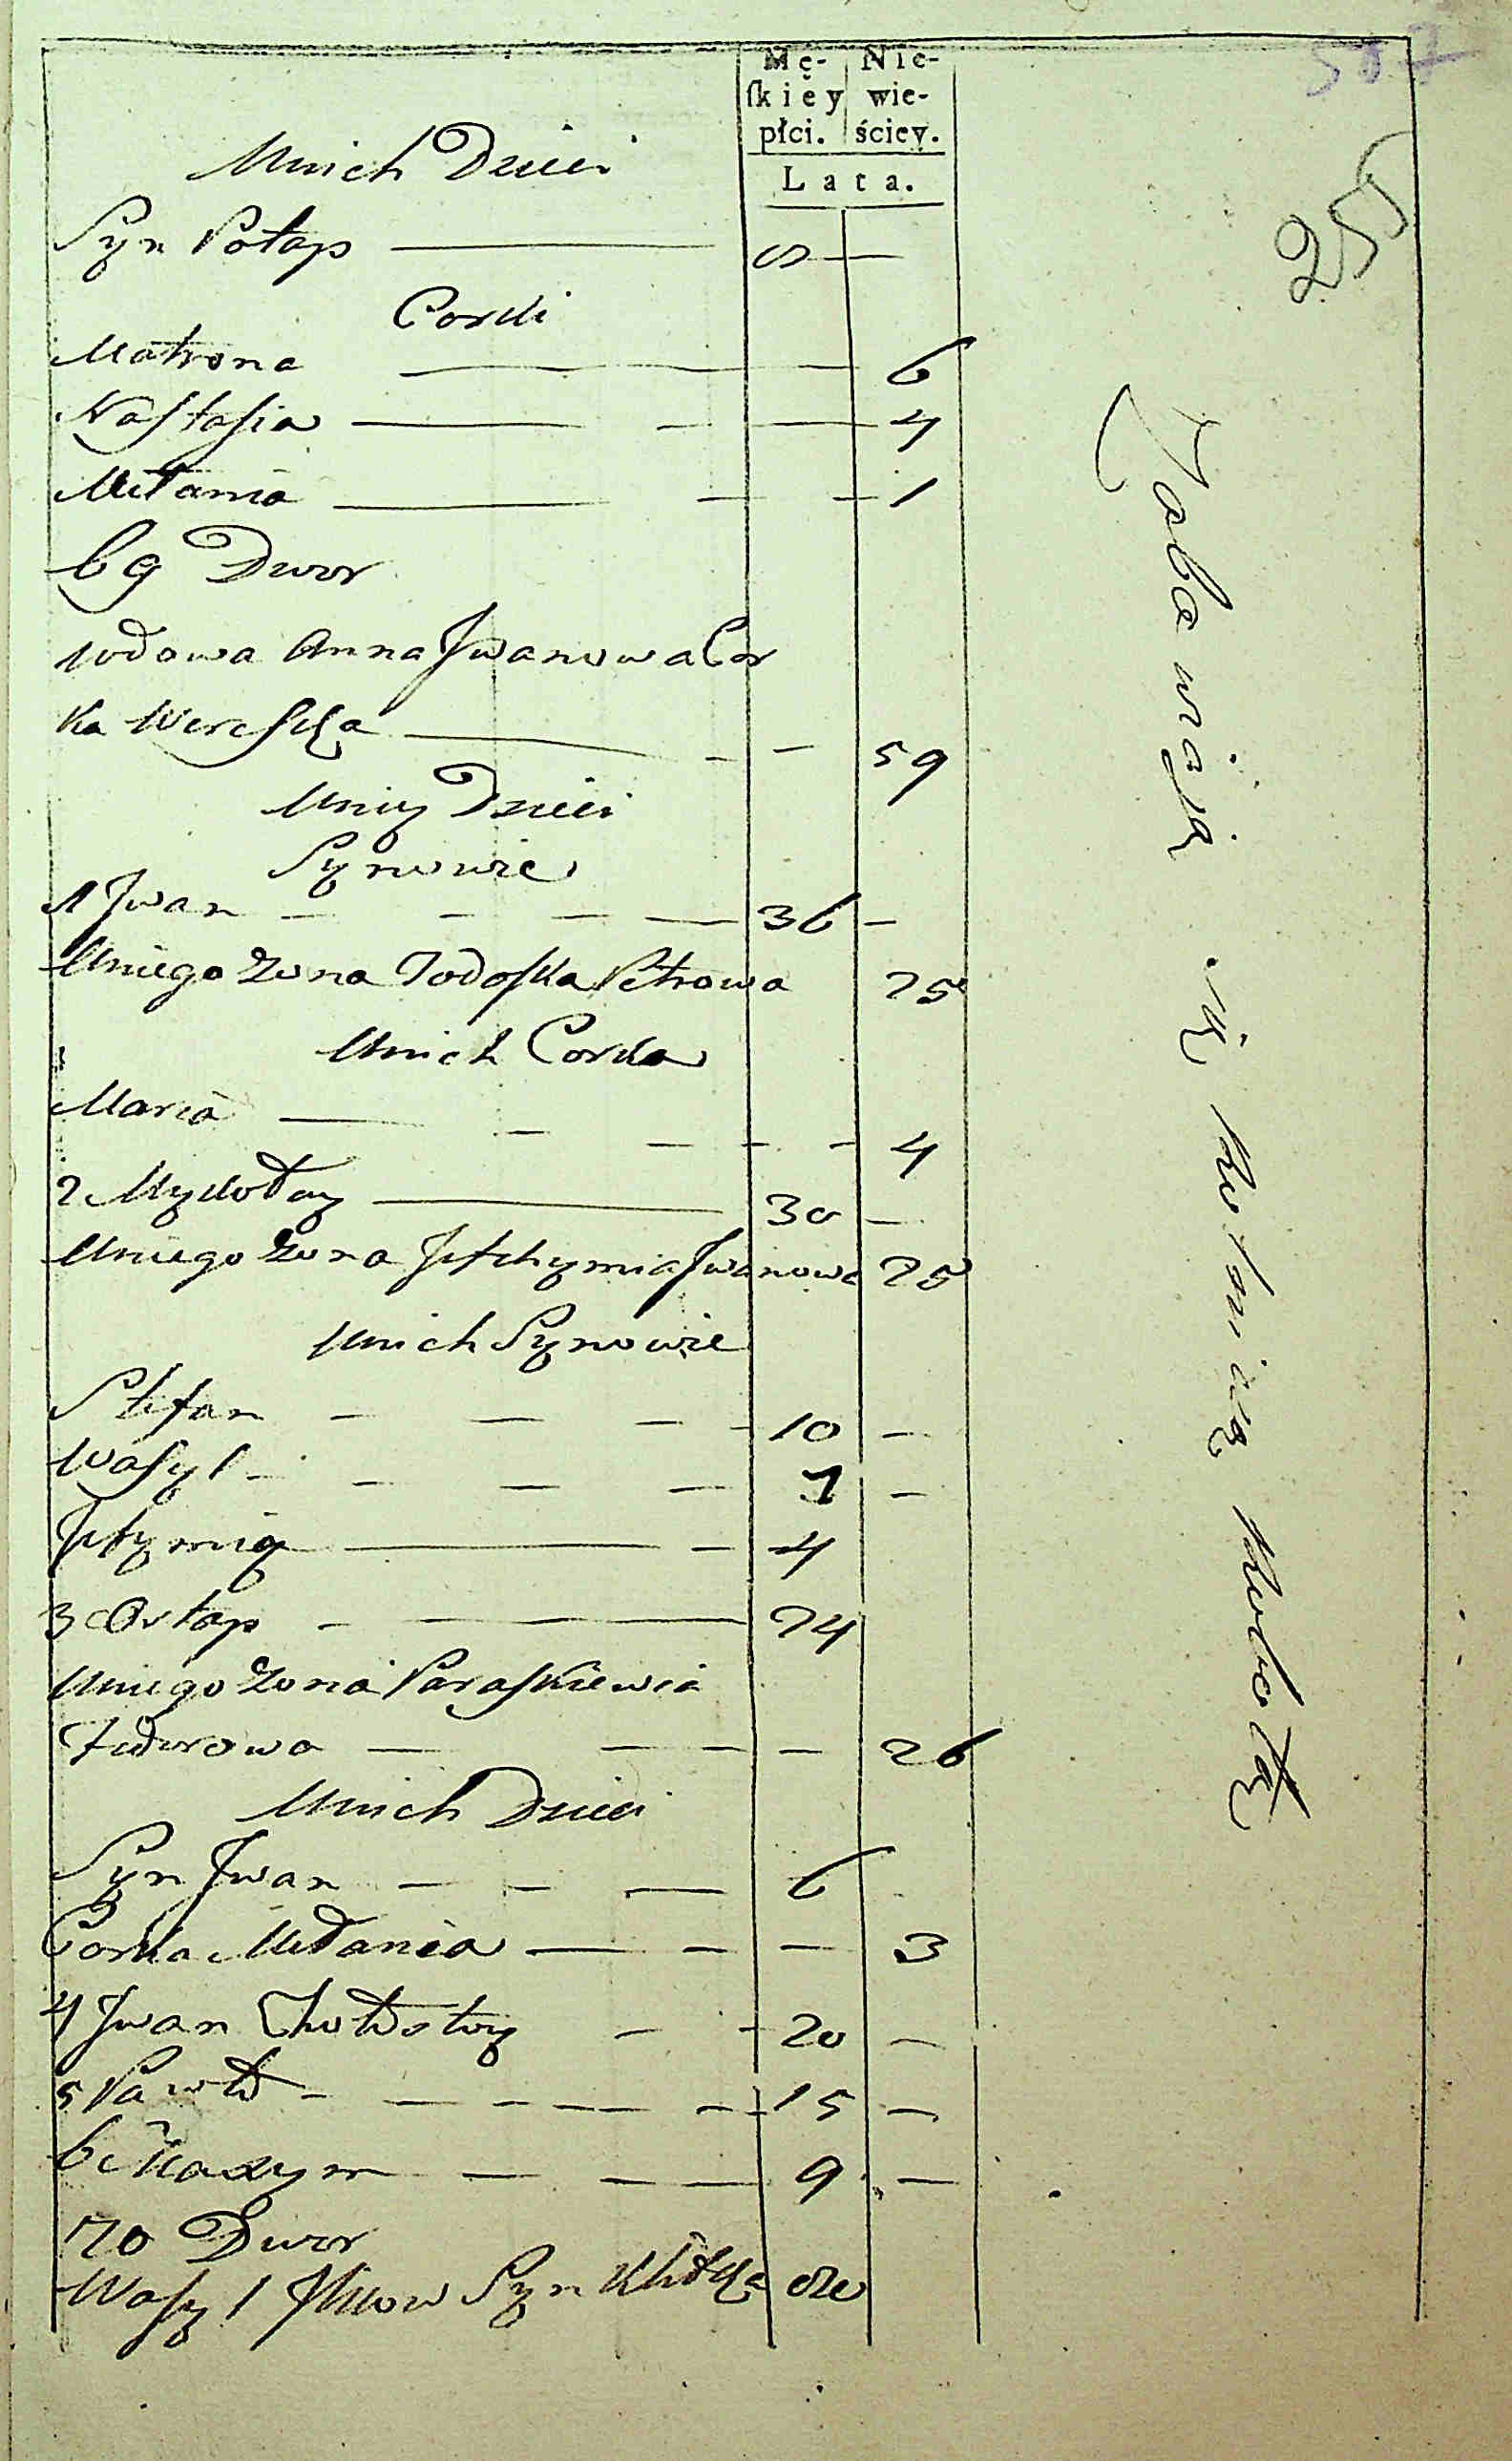 507
255
Mę- Nie-
ſkiey wie-
płci. ściey.
Lata.
Unich Dzieci
Syn Potap — —
Corki
Matrona — 6
Nastasia — 4
Mełania — 1
69 Dwor
wdowa Anna Jwanowa Cor
ka — 59
Uniey Dzieci
Synowie
1 Jwan — 36 —
Uniego Zona Todoska Petrowa 25
Unich Corka
Maria — 4
2 Mykołay — 30 —
Uniego Zona Jefchymia Jwanowa 25
Unich Synowie
Stefan — 10 —
Wasyl — 7 —
Jefymiy — 4
3 Ostap — 24
Uniego Zona Paraskiewia
Fedorowa — 26
Unich Dzieci
Syn Jwan — 6
Corka Mełania — 3
4 Jwan — 20 —
5 Paweł — 15 —
6 Maxym — 9 —
70 Dwor
Wasyl Syn
Zabawiaią się rolniczą robotą